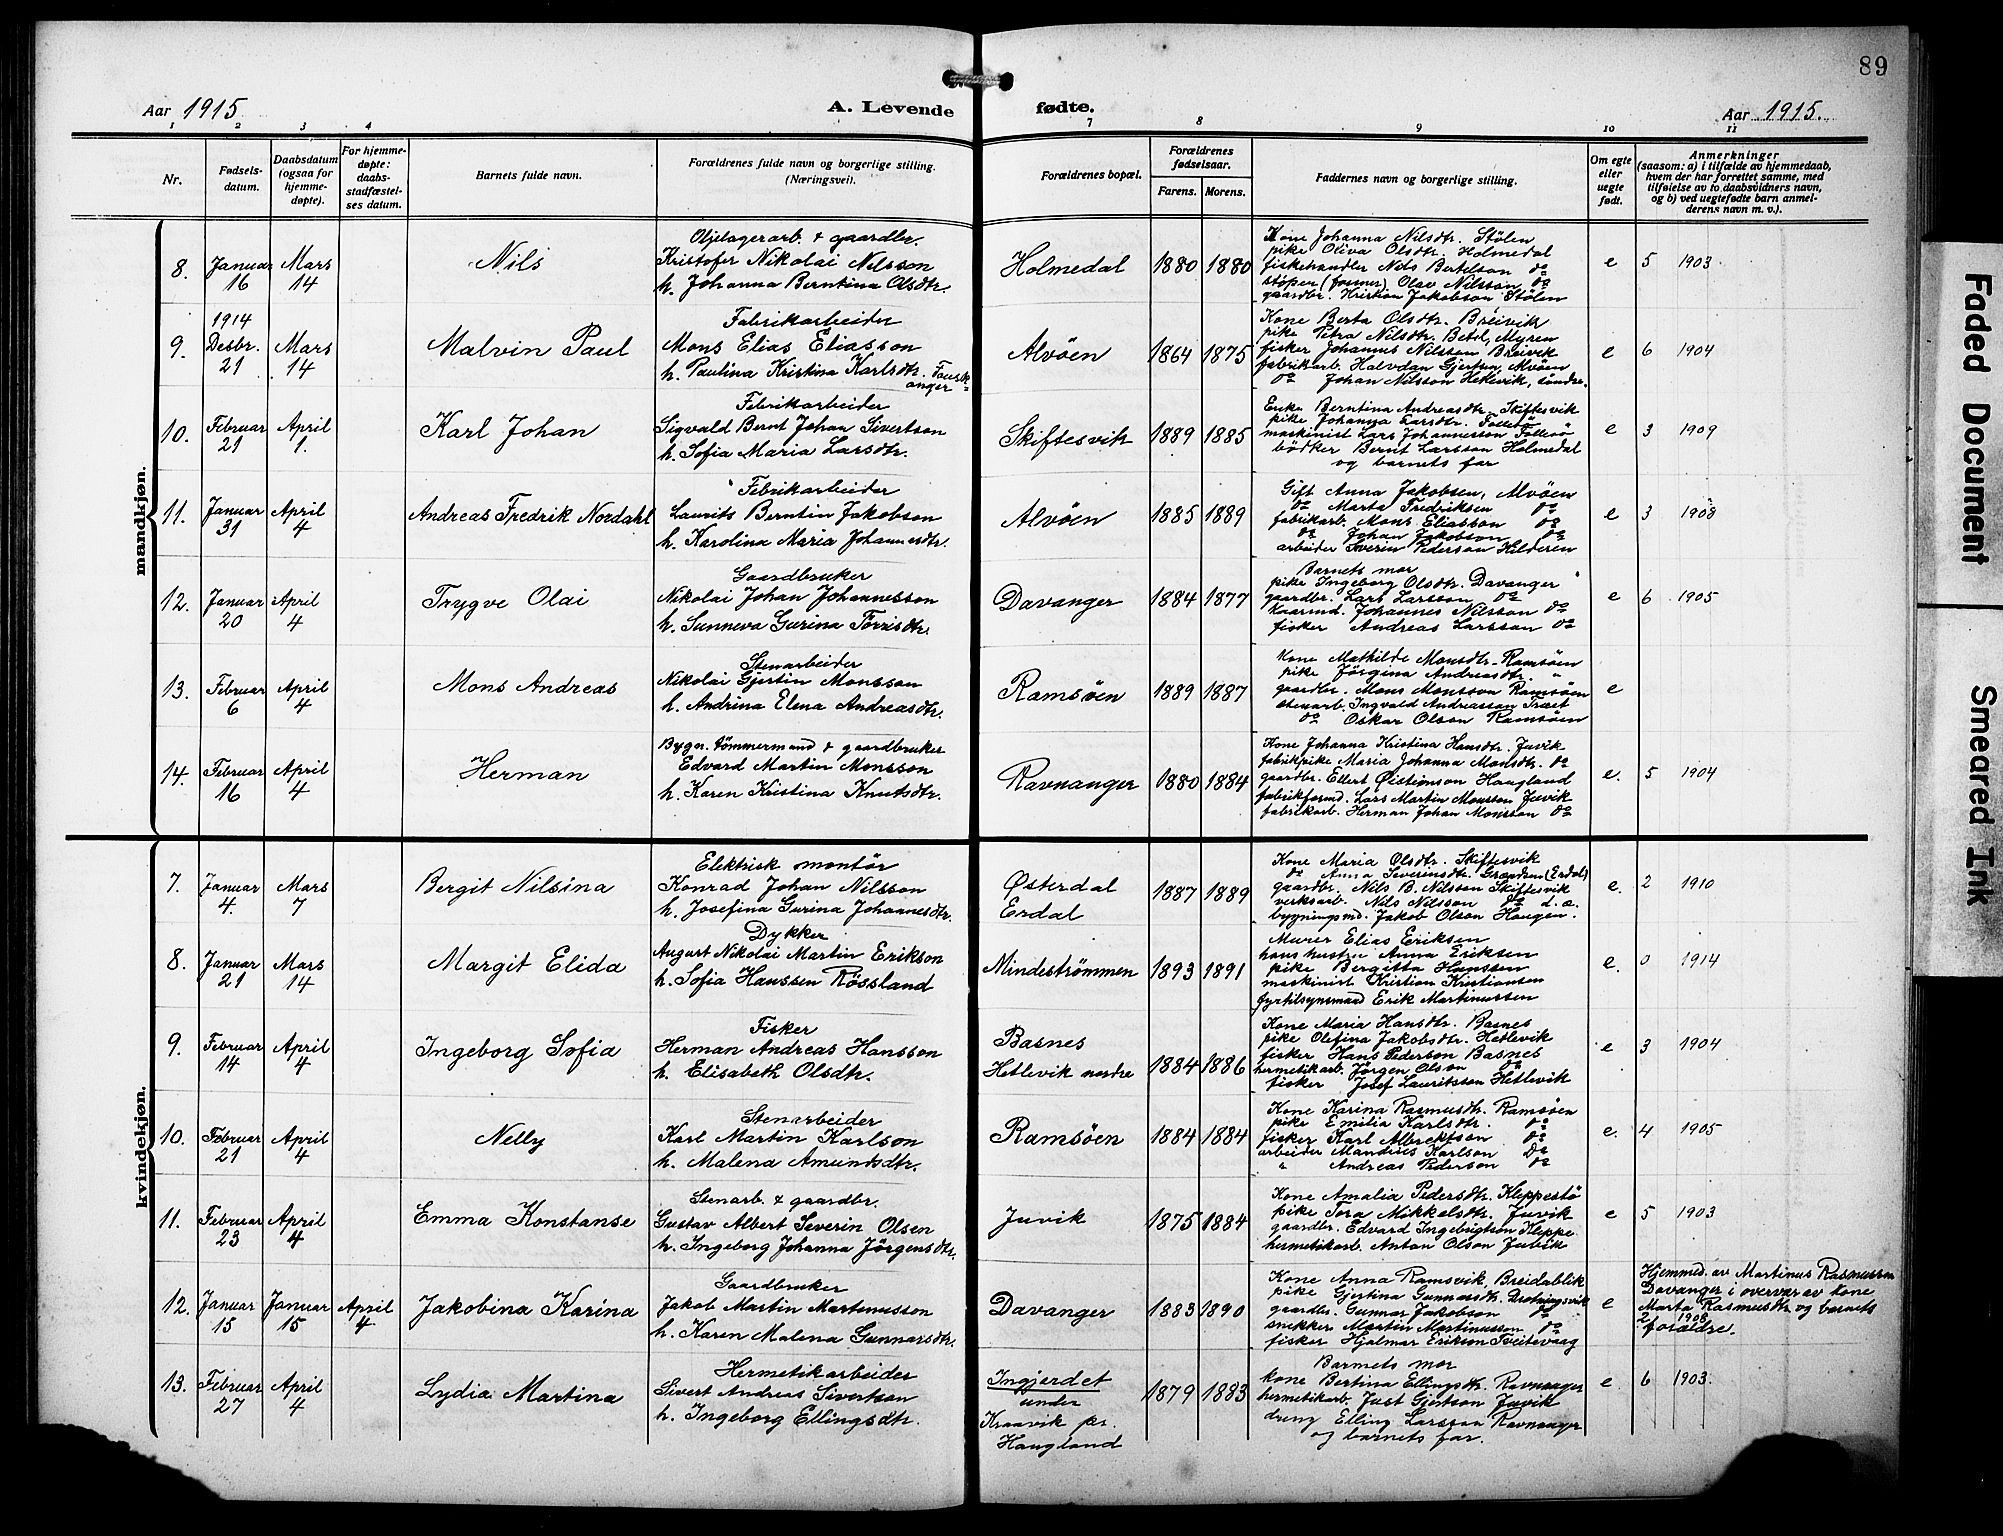 89
Aar 1915. A. Levende fødte. Aar 1915.
1 2 3 4 7 8 9 10 11
Nr.
Fødsels-
datum.
Daabsdatum
(ogsaa for
hjemme-
døpte).
For hjemme-
døpte:
daabs-
stadfæstel-
ses datum.
Barnets fulde navn.
Forældrenes fulde navn og borgerlige stilling.
(Næringsvei).
Forældrenes bopæl.
Forældrenes
fødselsaar.
Farens. Morens.
Faddernes navn og borgerlige stilling.
Om egte
eller
uegte
født.
Anmerkninger
(saasom: a) i tilfælde av hjemmedaab,
hvem der har forrettet samme, med
tilføielse av to daabsvidners navn,
og b) ved uegtefødte barn anmel-
derens navn m. v.).
mandkjøn.
8. Januar 16 Mars 14 Nils
Oljelagerarb. & gaardbr.
Kristofer Nikolai Nilsson
h. Johanna Berntina Olsdtr.
Holmedal 1880 1880
Kone Johanna Nilsdtr. Stølen
pike Oliva Olsdtr. Holmedal
fiskehandler Nils Bertelson do
støper (former) Olav Nilsson do
gaardbr. Kristian Jakobson Stølen
e 5 1903
9. 1914 Desbr. 21 Mars 14 Malvin Paul
Fabrikarbeider
Mons Elias Eliasson
h. Paulina Kristina Karlsdtr. Fausk-
anger
Alvøen 1864 1875
Kone Berta Olsdtr. Breivik
pike Petra Nilsdtr. Betel, Myren
fisker Johannes Nilsson Breivik
fabrikarb. Halvdan Gjertsen, Alvøen
do Johan Nilsson Hetlevik, søndre.
e 6 1904
10. Februar 21 April 1. Karl Johan
Fabrikarbeider
Sigvald Bernt Johan Sivertson
h. Sofia Maria Larsdtr.
Skiftesvik 1889 1885
Enke Berntina Andreasdtr. Skiftesvik
pike Johanna Larsdtr. Follesø
maskinist Lars Johannesson Follesø
bødker Bernt Larsson Holmedal
og barnets far
e 3 1909
11. Januar 31 April 4 Andreas Fredrik Nordahl
Fabrikarbeider
Laurits Berntin Jakobson
h. Karolina Maria Johannesdtr.
Alvøen 1885 1889
Gift Anna Jakobsen, Alvøen
do Marta Fredriksen do
fabrikarb. Mons Eliasson do
do Johan Jakobson do
arbeider Sverin Pederson Hilderen
e 3 1908
12. Januar 20 April 4 Trygve Olai
Gaardbruker
Nikolai Johan Johannesson
h. Sunneva Gurina Torrisdtr.
Davanger 1884 1877
Barnets mor
pike Ingeborg Olsdtr. Davanger
gaardbr. Lars Larsson do
kaarmd. Johannes Nilsson do
fisker Andreas Larsson do
e 6 1905
13. Februar 6 April 4 Mons Andreas
Stenarbeider
Nikolai Gjertin Monsson
h. Andrina Elena Andreasdtr.
Ramsøen 1889 1887
Kone Mathilde Monsdtr. Ramsøen
pike Jørgina Andreasdtr. "
gaardbr. Mons Monsson Ramsøen
stenarb. Ingvald Andreasson Træet
do Oskar Olson Ramsøen
e
14. Februar 16 April 4 Herman
Bygn. tømmermand & gaardbruker
Edvard Martin Monsson
h. Karen Kristina Knutsdtr.
Ravnanger 1880 1884
Kone Johanna Kristina Hansdtr. Juvik
fabrikpike Maria Johanna Monsdtr. do
gaardbr. Ellert Øistienson Haugland
fabrikformd. Lars Martin Monsson Juvik
fabrikarb. Herman Johan Monsson do
e. 5 1904
kvindekjøn.
7. Januar 4. Mars 7 Bergit Nilsina
Elektrisk montör
Konrad Johan Nilsson
h. Josefina Gurina Johannesdtr.
Østerdal
Erdal
1887 1889
Kone Maria Olsdtr. Skiftesvik
do Anna Severinsdtr. (Erdal)
gaardbr. Nils B. Nilsson Skiftesvik
verksarb. Nils Nilsson do d. a.
bygningsmd. Jakob Olson Haugen.
e. 2 1910
8. Januar 21 Mars 14 Margit Elida
Dykker
August Nikolai Martin Erikson
h. Sofia Hanssen Røssland
Mindeströmmen 1893 1891
Murer Elias Eriksen
hans hustru Anna Eriksen
pike Bergitta Hanssen
maskinist Kristian Kristiansen
fyrtilsynsmand Erik Martinussen
e. 0 1914
9. Februar 14 April 4 Ingeborg Sofia
Fisker
Herman Andreas Hansson
h. Elisabeth Olsdtr.
Basnes
Hetlevik nordre
1884 1886
Kone Maria Hansdtr. Basnes
pike Olefina Jakobsdtr. Hetlevik
fisker Hans Pederson Basnes
hermetikarb. Jørgen Olson do
fisker Josef Lauritsson Hetlevik
e 3 1904
10. Februar 21 April 4 Nelly
Stenarbeider
Karl Martin Karlson
h. Malena Amundsdtr.
Ramsøen 1884 1884
Kone Karina Rasmusdtr. Ramsøen
pike Emilia Karlsdtr. do
fisker Karl Albrektson do
arbeider Mandius Karlson do
" Andreas Pederson do
e. 4 1905
11. Februar 23 April 4 Emma Konstanse
Stenarb. & gaardbr.
Gustav Albert Severin Olsen
h. Ingeborg Johanna Jörgensdtr.
Juvik 1875 1884
Kone Amalia Pedersdtr. Kleppestø
pike Tora Mikkelsdtr. Juvik
gaardbr. Edvard Ingebrigtson Kleppe
hermetikarb. Anton Olson Juvik
e 5 1903
12. Januar 15 Januar 15 April 4 Jakobina Karina
Gaardbruker
Jakob Martin Martinusson
h. Karen Malena Gunnarsdtr.
Davanger 1883 1890
Kone Anna Ramsvik, Breidablik
pike Gjertina Gunnarsdtr. Drotningsvik
gaardbr. Gunnar Jakobson do
snekker Martin Martinusson do
fisker Hjalmar Erikson Tveitevaag
e
Hjemmed. av Martinus Rasmussen
Davanger i overvær av kone
Marta Rasmusdtr og barnets
2 1908
forældre.
13. Februar 27 April 4 Lydia Martina
Hermetikarbeider
Sivert Andreas Sivertson
h. Ingeborg Ellingsdtr.
Ingjerdet
under
Kraavik pr.
Haugland
1879 1883
Barnets mor
kone Bertina Ellingsdtr. Ravnanger
hermetikarb. Just Gjertson Juvik
dreng Elling Larsson Ravnanger
og barnets far.
e. 6 1903.
Faded Document
Smeared Ink